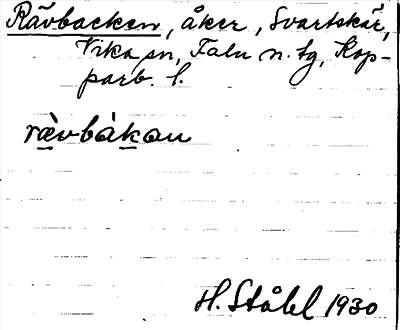 Rävbacken, åker, Svartskär,
Vika sn, Falu n. tg, Kop-
parb. l.
rävbàkan
H. Ståhl 1930